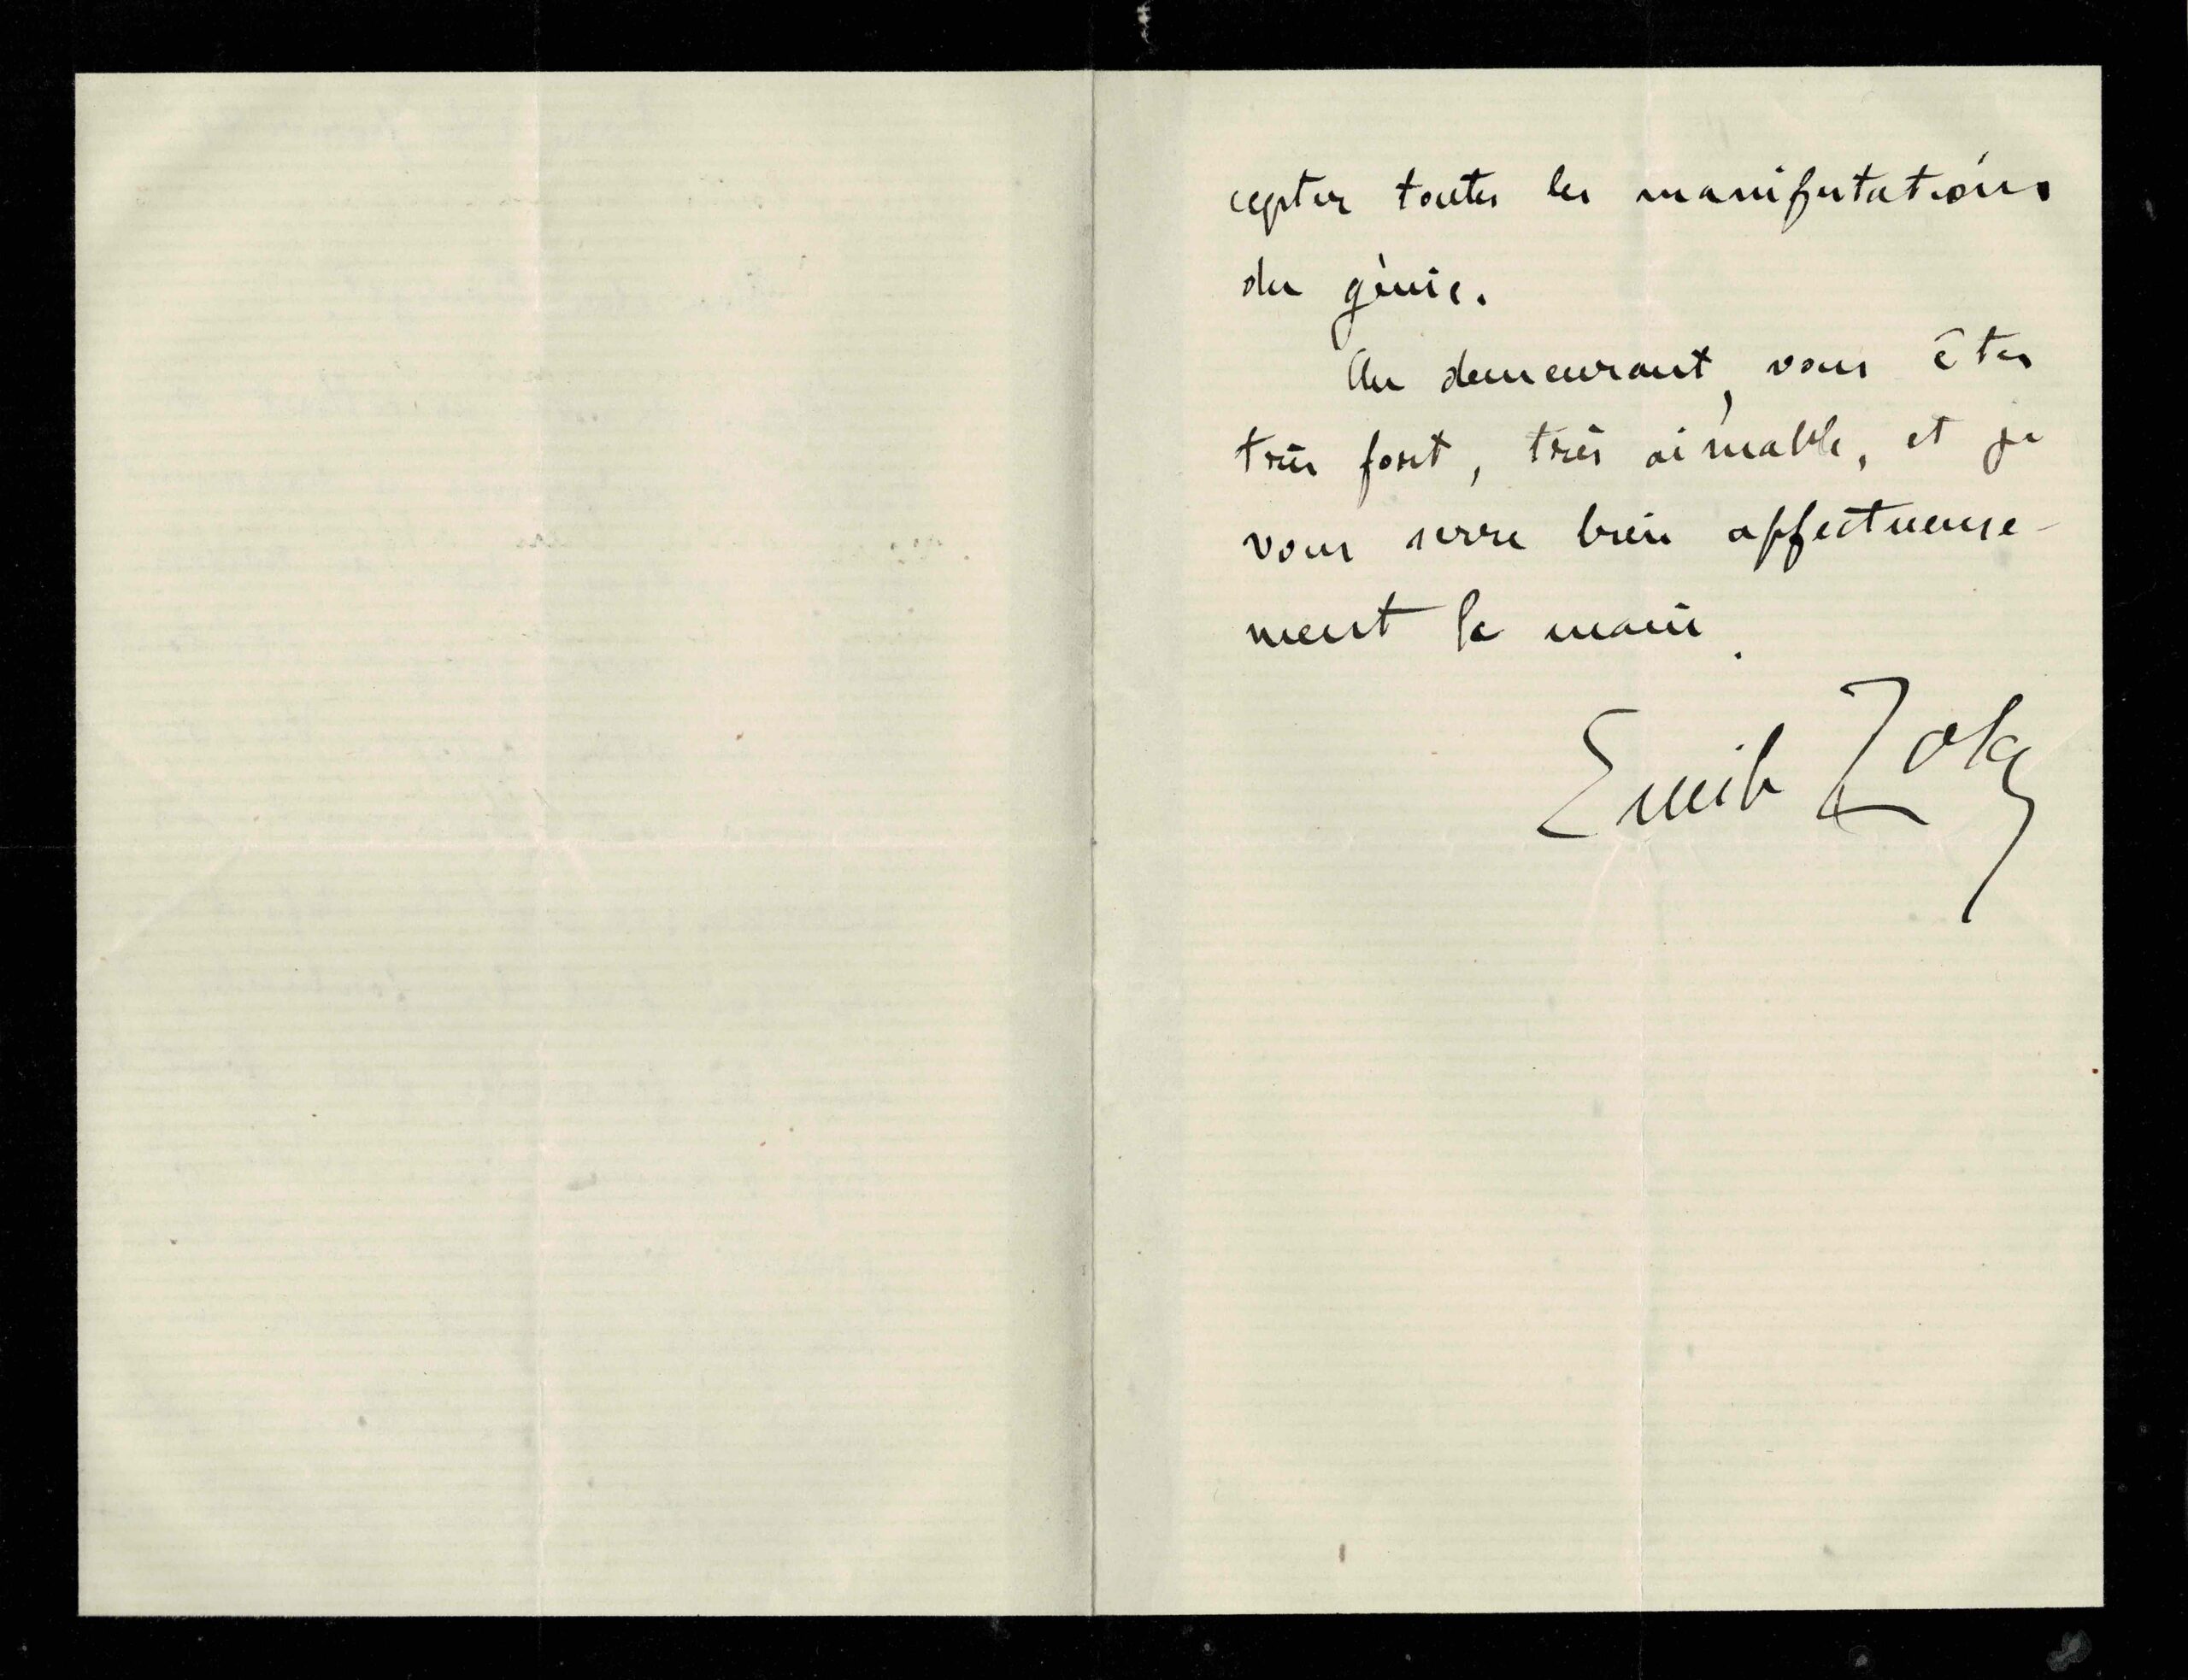 cepter toutes les manifestations
du génie.
Au demeurant, vous êtes
très fort, très aimable, et je
vous serre bien affectueuse-
ment la main.
Emile Zola